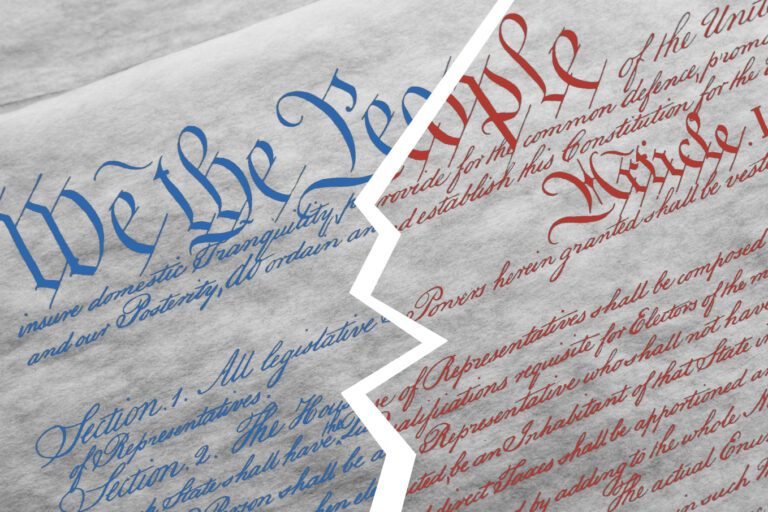 We the People of the Unit
insure domestic Tranquility, provide for the common defence, promo
and our Posterity, do ordain and establish this Constitution for the
Article. I
Section. 1. All legislative Powers herein granted shall be vest
of Representatives.
Section. 2. The House of Representatives shall be composed
h State shall have the Qualifications requisite for Electors of the m
Person shall be a Representative who shall not have
hen elected, be an Inhabitant of that State in
direct Taxes shall be apportioned a
d by adding to the whole N
The actual Enu
in such M